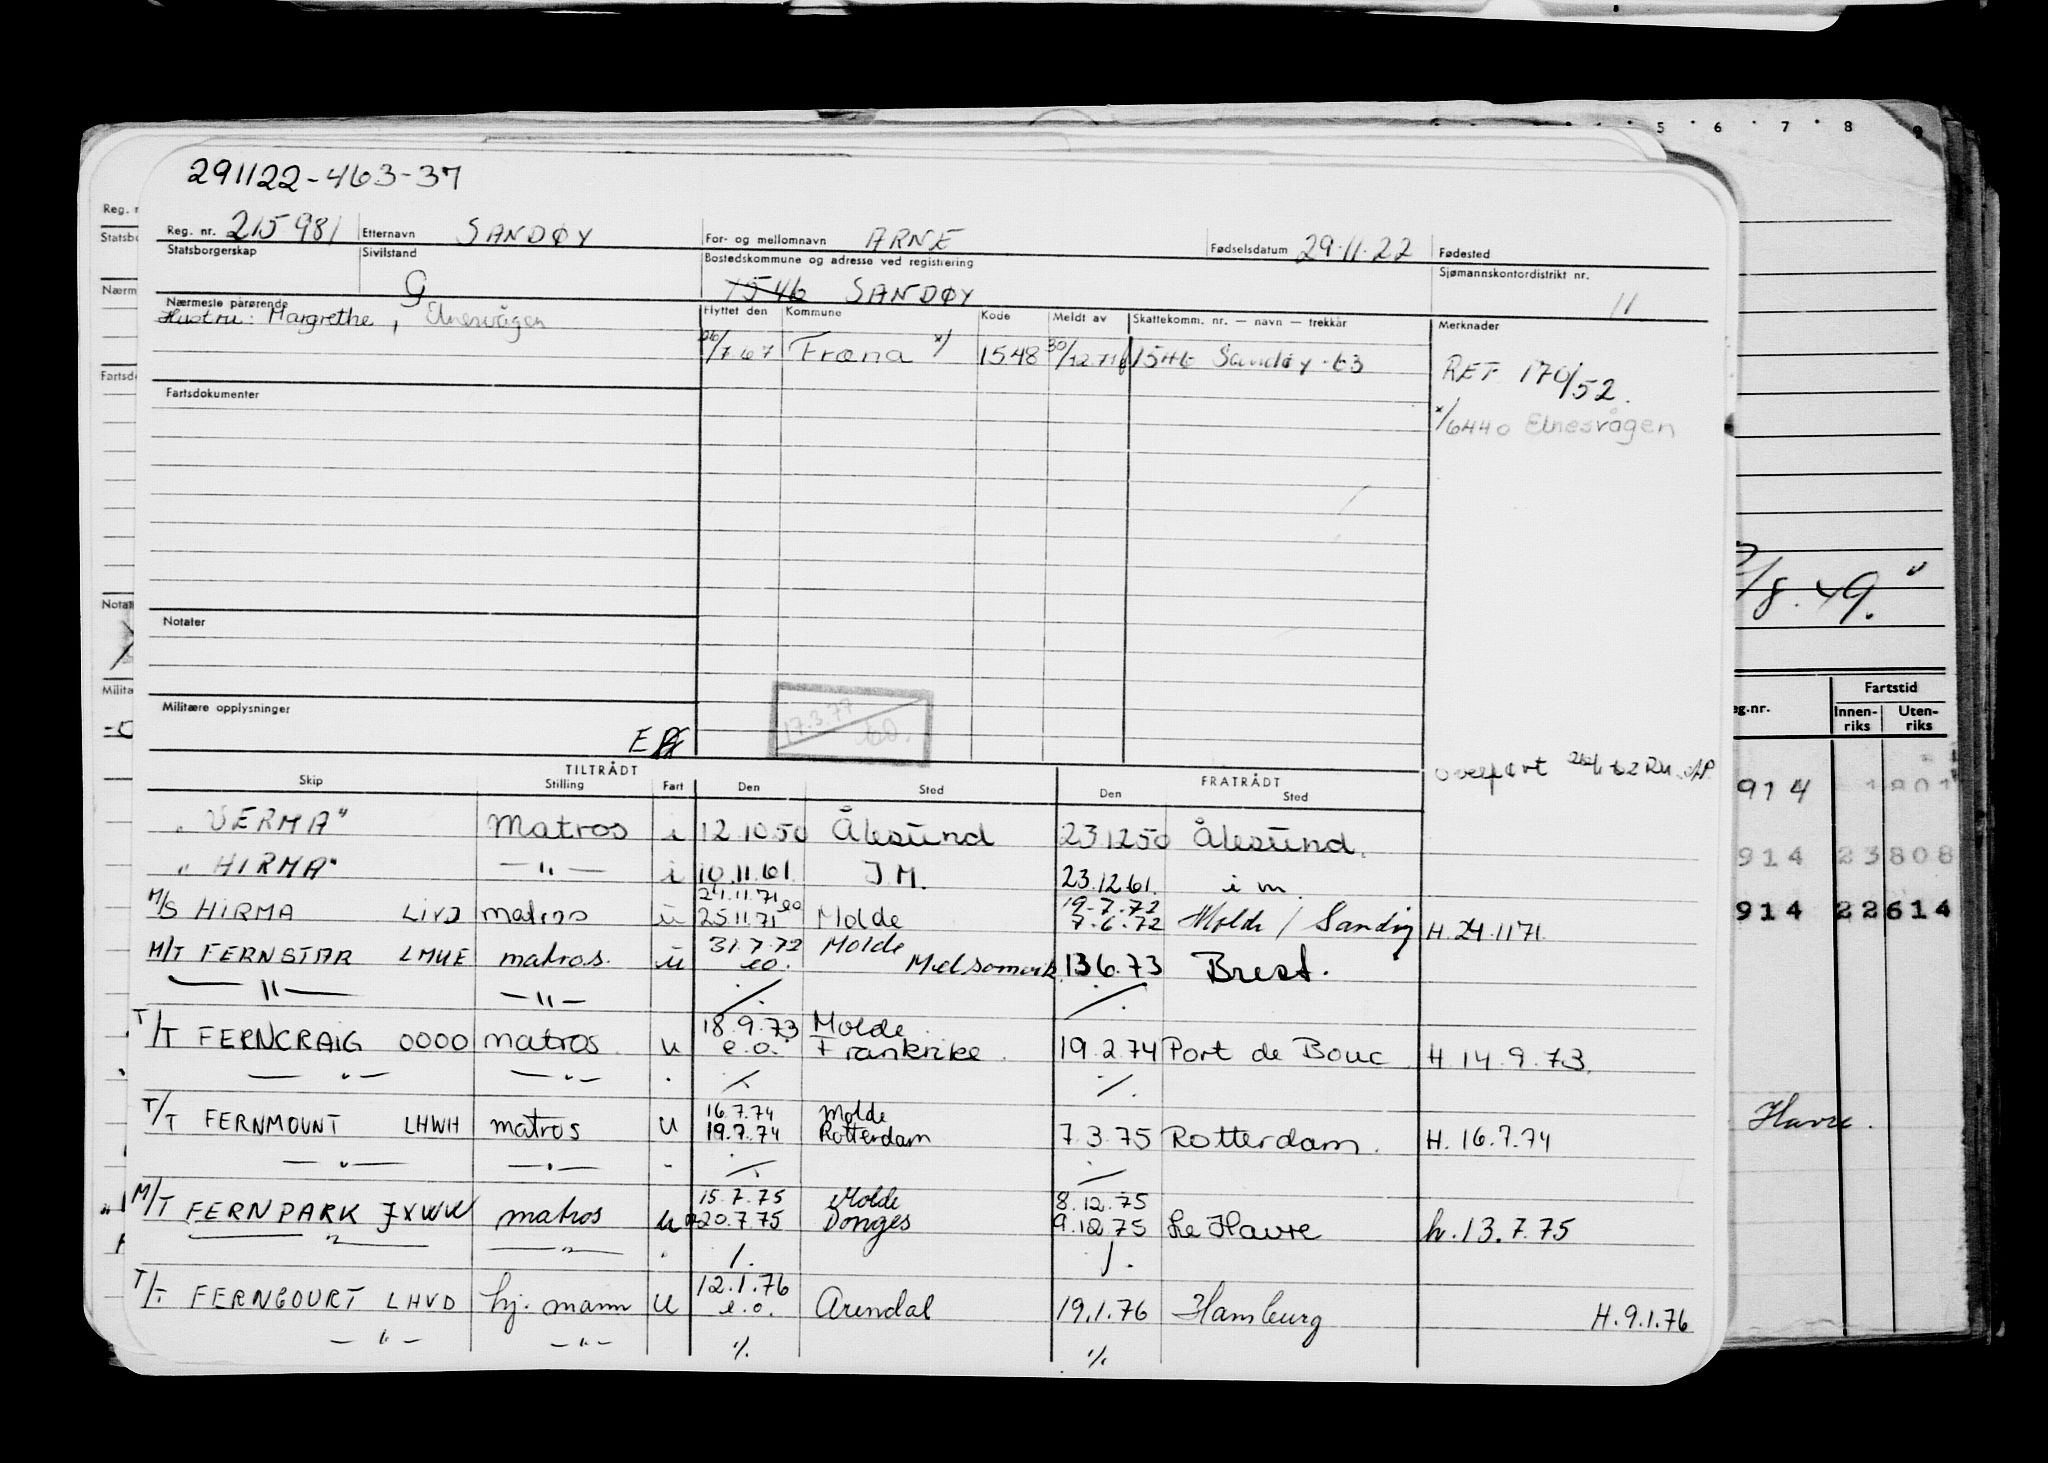 5 6 7 8 9
291122-463-37
Reg. nr. 215981 Etternavn SANDØY For- og mellomnavn ARNE Fødselsdatum 29.11.22 Fødested
Statsborgerskap Sivilstand G Bostedskommune og adresse ved registrering 1546 SANDØY Sjømannskontordistrikt nr. 11
Nærmeste pårørende Flyttet den Kommune Kode Meldt av Skattekomm. nr. — navn — trekkår Merknader
Hustru: Margrethe, Elnesvågen
/7.67 Fræna x/ 1548 30/12.71 1546 Sandøy
REF 170/52.
x/6440 Elnesvågen
Fartsdokumenter
Notater
Militære opplysninger
17.3.77
Overført
TILTRÅDT FRATRÅDT
Skip Stilling Fart Den Sted Den Sted
"VERMA" Matros i 12.10.50 Ålesund 23.12.50 Ålesund.
"HIRMA" —"— i 10.11.61. I.M. 23.12.61. i m
24.11.71 eo 19.7.72
M/S HIRMA matros u 25.11.71 Molde 7.6.72 Molde / H.24.11.71.
31.7.72 Molde
M/T FERNSTAR LMUE matros. u eo. 13.6.73 Brest.
—"— —"— ./. ./.
18.9.73 Molde
T/T FERNCRAIG OOOO matros u e.o. Frankrike. 19.2.74 Port de Bouc H 14.9.73.
—"— —"— . ./. ./.
16.7.74 Molde
T/T FERNMOUNT LHWH matros u 19.7.74 Rotterdam 7.3.75 Rotterdam. H. 16.7.74
—"— —"— - ./. ./.
15.7.75 Molde 8.12.75
M/T FERNPARK JXWW matros u 20.7.75 Donges 9.12.75 Le Havre h.13.7.75
—"— —"— . ./. ./.
12.1.76
T/T FERNCOURT LHVD hj. mann u e.o. Arendal 19.1.76 Hamburg H.9.1.76
—"— —"— ./. ./.
Reg. n
Statsbo
Nærm
Fartsdo
Notat
Milita
/8.49."
eg.nr. Fartstid
Innen-riks Uten-riks
914 1801
914 23808
914 22614
Havre.